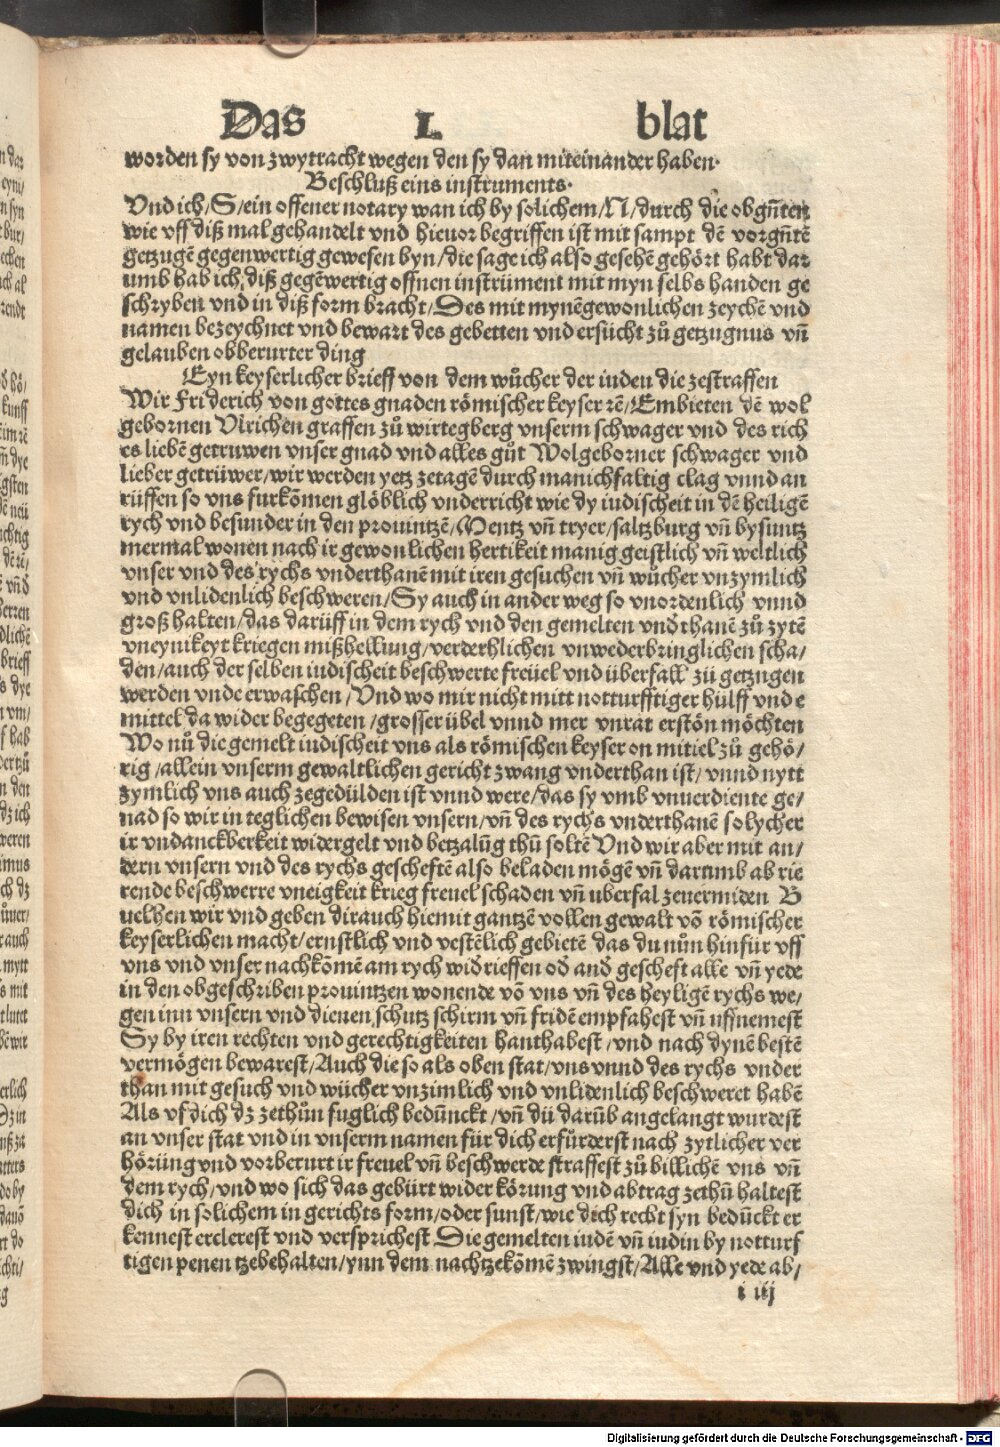 Das L blat
worden sy von zwytracht wegen den sy dan miteinander haben·
Beschluß eins instruments·
Vnd ich/S/ein offener notary wan ich by solichem/N/durch die obgn̄ten
wie vff diß mal gehandelt vnd hieuor begriffen ist mit sampt dē vorgn̄tē
getzugē gegenwertig gewesen byn/die sage ich also gesehē gehört habt dar
umb hab ich diß gegēwertig offnen instrüment mit myn selbs handen ge
schryben vnd in diß form bracht/Des mit mynēgewonlichen zeychē vnd
namen bezeychnet vnd bewart des gebetten vnd ersücht zů getzugnus vn̄
gelauben obberurter ding
Eyn keyserlicher brieff von dem wůcher der iuden die zestraffen
Wir Friderich von gottes gnaden römischer keyser ꝛē/Embieten dē wol
gebornen Vlrichen graffen zů wirtegberg vnserm schwager vnd des rich
es liebē getruwen vnser gnad vnd alles gůt Wolgeborner schwager vnd
lieber getrüwer/wir werden yetz zetagē durch manichfaltig clag vnnd an
rüffen so vns furkōmen glöblich vnderricht wie dy iudischeit in dē heiligē
rych vnd besunder in den prouintzē/Mentz vn̄ tryer/saltzburg vn̄ bysuntz
mermal wonen nach ir gewonlichen hertikeit manig geistlich vn̄ weltlich
vnser vnd des rychs vnderthanē mit iren gesuchen vn̄ wůcher vnzymlich
vnd vnlidenlich beschweren/Sy auch in ander weg so vnordenlich vnnd
groß halten/das darüff in dem rych vnd den gemelten vndthanē zů zytē
vneynikeyt kriegen mißhellung/verderhlichen vnwederbringlichen scha/
den/auch der selben iudischeit beschwerte freüel vnd überfall zü getzugen
werden vnde erwaschen/Vnd wo mir nicht mitt notturfftiger hulff vnd e
mittel da wider begegeten/grosser übel vnnd mer vnrat erstön möchten
Wo nů die gemelt iudischeit vns als römischen keyser on mitiel zů gehö/
rig/allein vnserm gewaltlichen gericht zwang vnderthan ist/vnnd nytt
zymlich vns auch zegedülden ist vnnd were/das sy vmb vnuerdiente ge/
nad so wir in teglichen bewisen vnsern/vn̄ des rychs vnderthanē solycher
ir vndanckberkeit widergelt vnd betzalūg thū soltē Vnd wir aber mit an/
dern vnsern vnd des rychs gescheftē also beladen mögē vn̄ darumb ab rie
rende beschwerre vneigkeit krieg freuel schaden vn̄ uberfal zeuermiden B
uelhen wir vnd geben dirauch hiemit gantzē vollen gewalt vō römischer
keyserlichen macht/ernstlich vnd vestēlich gebietē das du nůn hinfür vff
vns vnd vnser nachkōmē am rych widrieffen od and gescheft alle vn̄ yede
in den obgeschriben prouintzen wonende vō vns vn̄ des heyligē rychs we/
gen inn vnsern vnd dienen schutz schirm vn̄ fridē empfahest vn̄ uffnemest
Sy by iren rechten vnd gerechtigkeiten hanthabest/vnd nach dynē bestē
vermögen bewarest/Auch die so als oben stat/vns vnnd des rychs vnder
than mit gesuch vnd wücher vnzimlich vnd vnlidenlich beschweret habē
Als vf dich dz zethůn fuglich bedūnckt/vn̄ dü darūb angelangt wurdest
an vnser stat vnd in vnserm namen für dich erfürderst nach zytlicher ver
hörüng vnd vorberurt ir freuel vn̄ beschwerde straffest zů billichē vns vn̄
dem rych/vnd wo sich das gebürt wider körung vnd abtrag zethū haltest
dich in solichem in gerichts form/oder sunst/wie dich recht syn bedūckt er
kennest erclerest vnd versprichest Die gemelten iudē vn̄ iudin by notturf
tigen penen tzebehalten/ynn dem nachtzekōmē zwingst/Alle vnd yede ab/
i iij
Digitalisierung gefördert durch die Deutsche Forschungsgemeinschaft - DFG